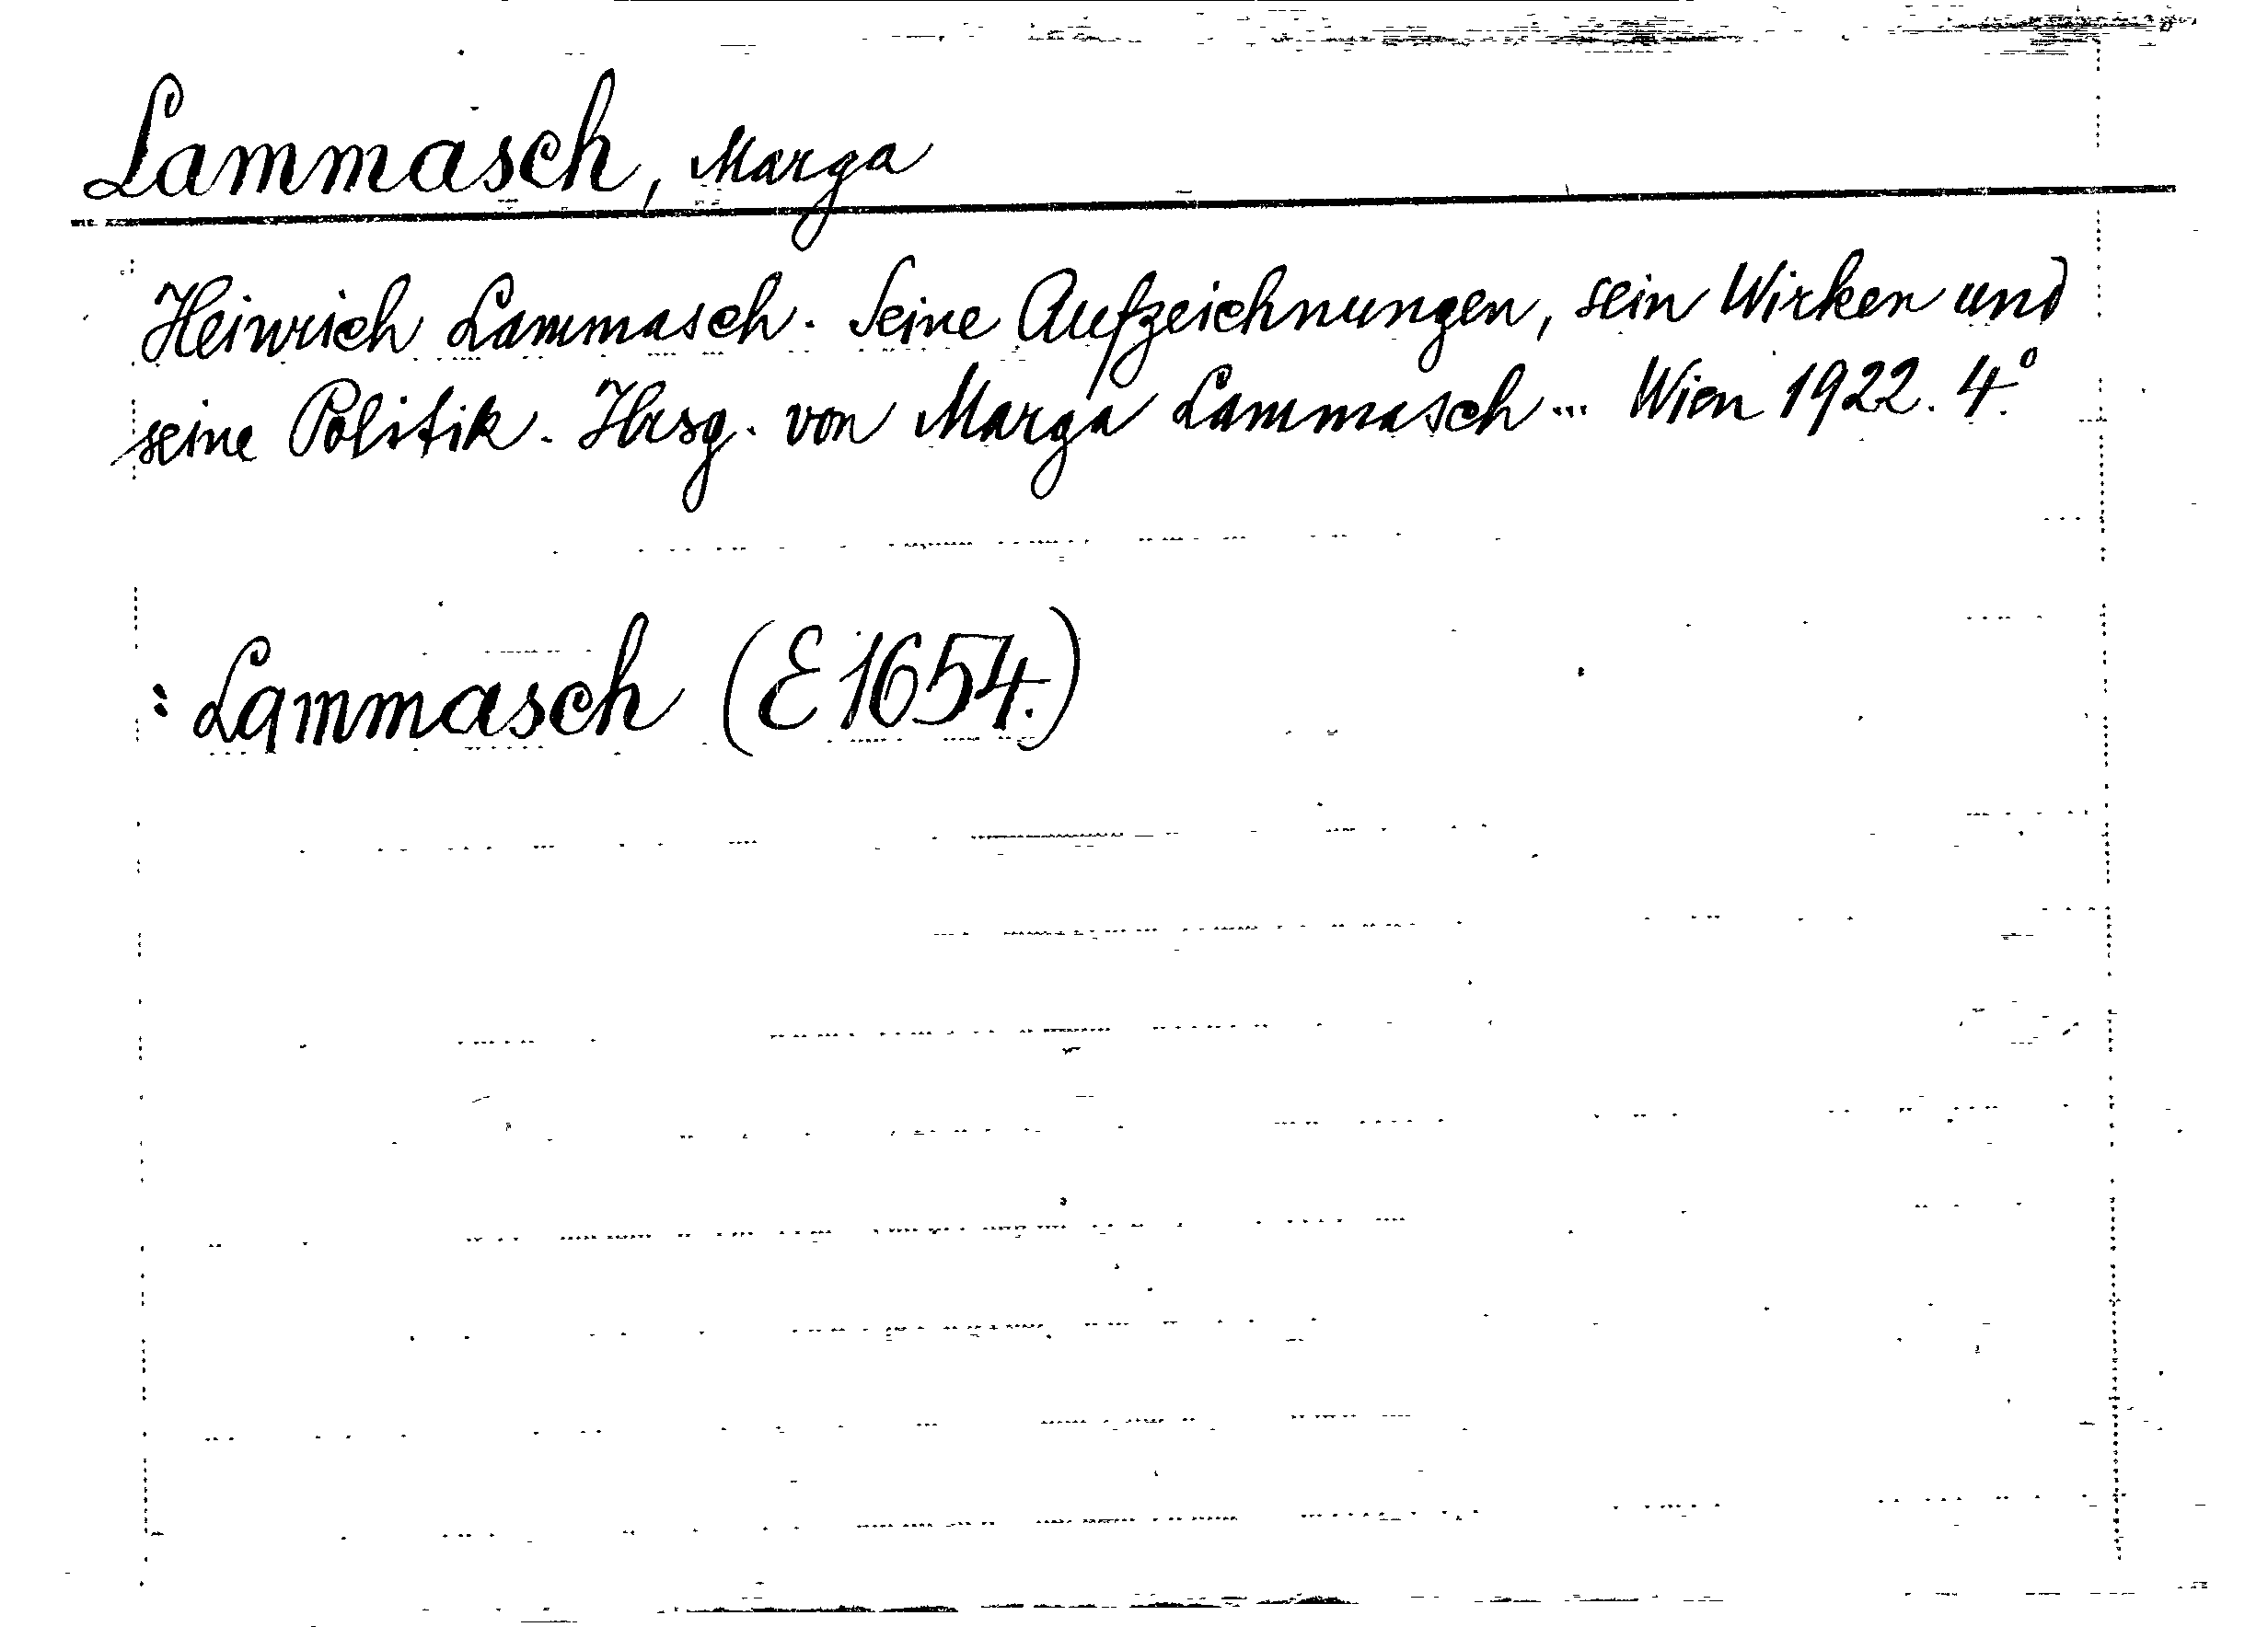 Lammasch, Marga
Heinrich Lammasch. Seine Aufzeichnungen, sein Wirken und
seine Politik. Hrsg. von Marga Lammasch ... Wien 1922. 4.°
: Lammasch (E 1654.)